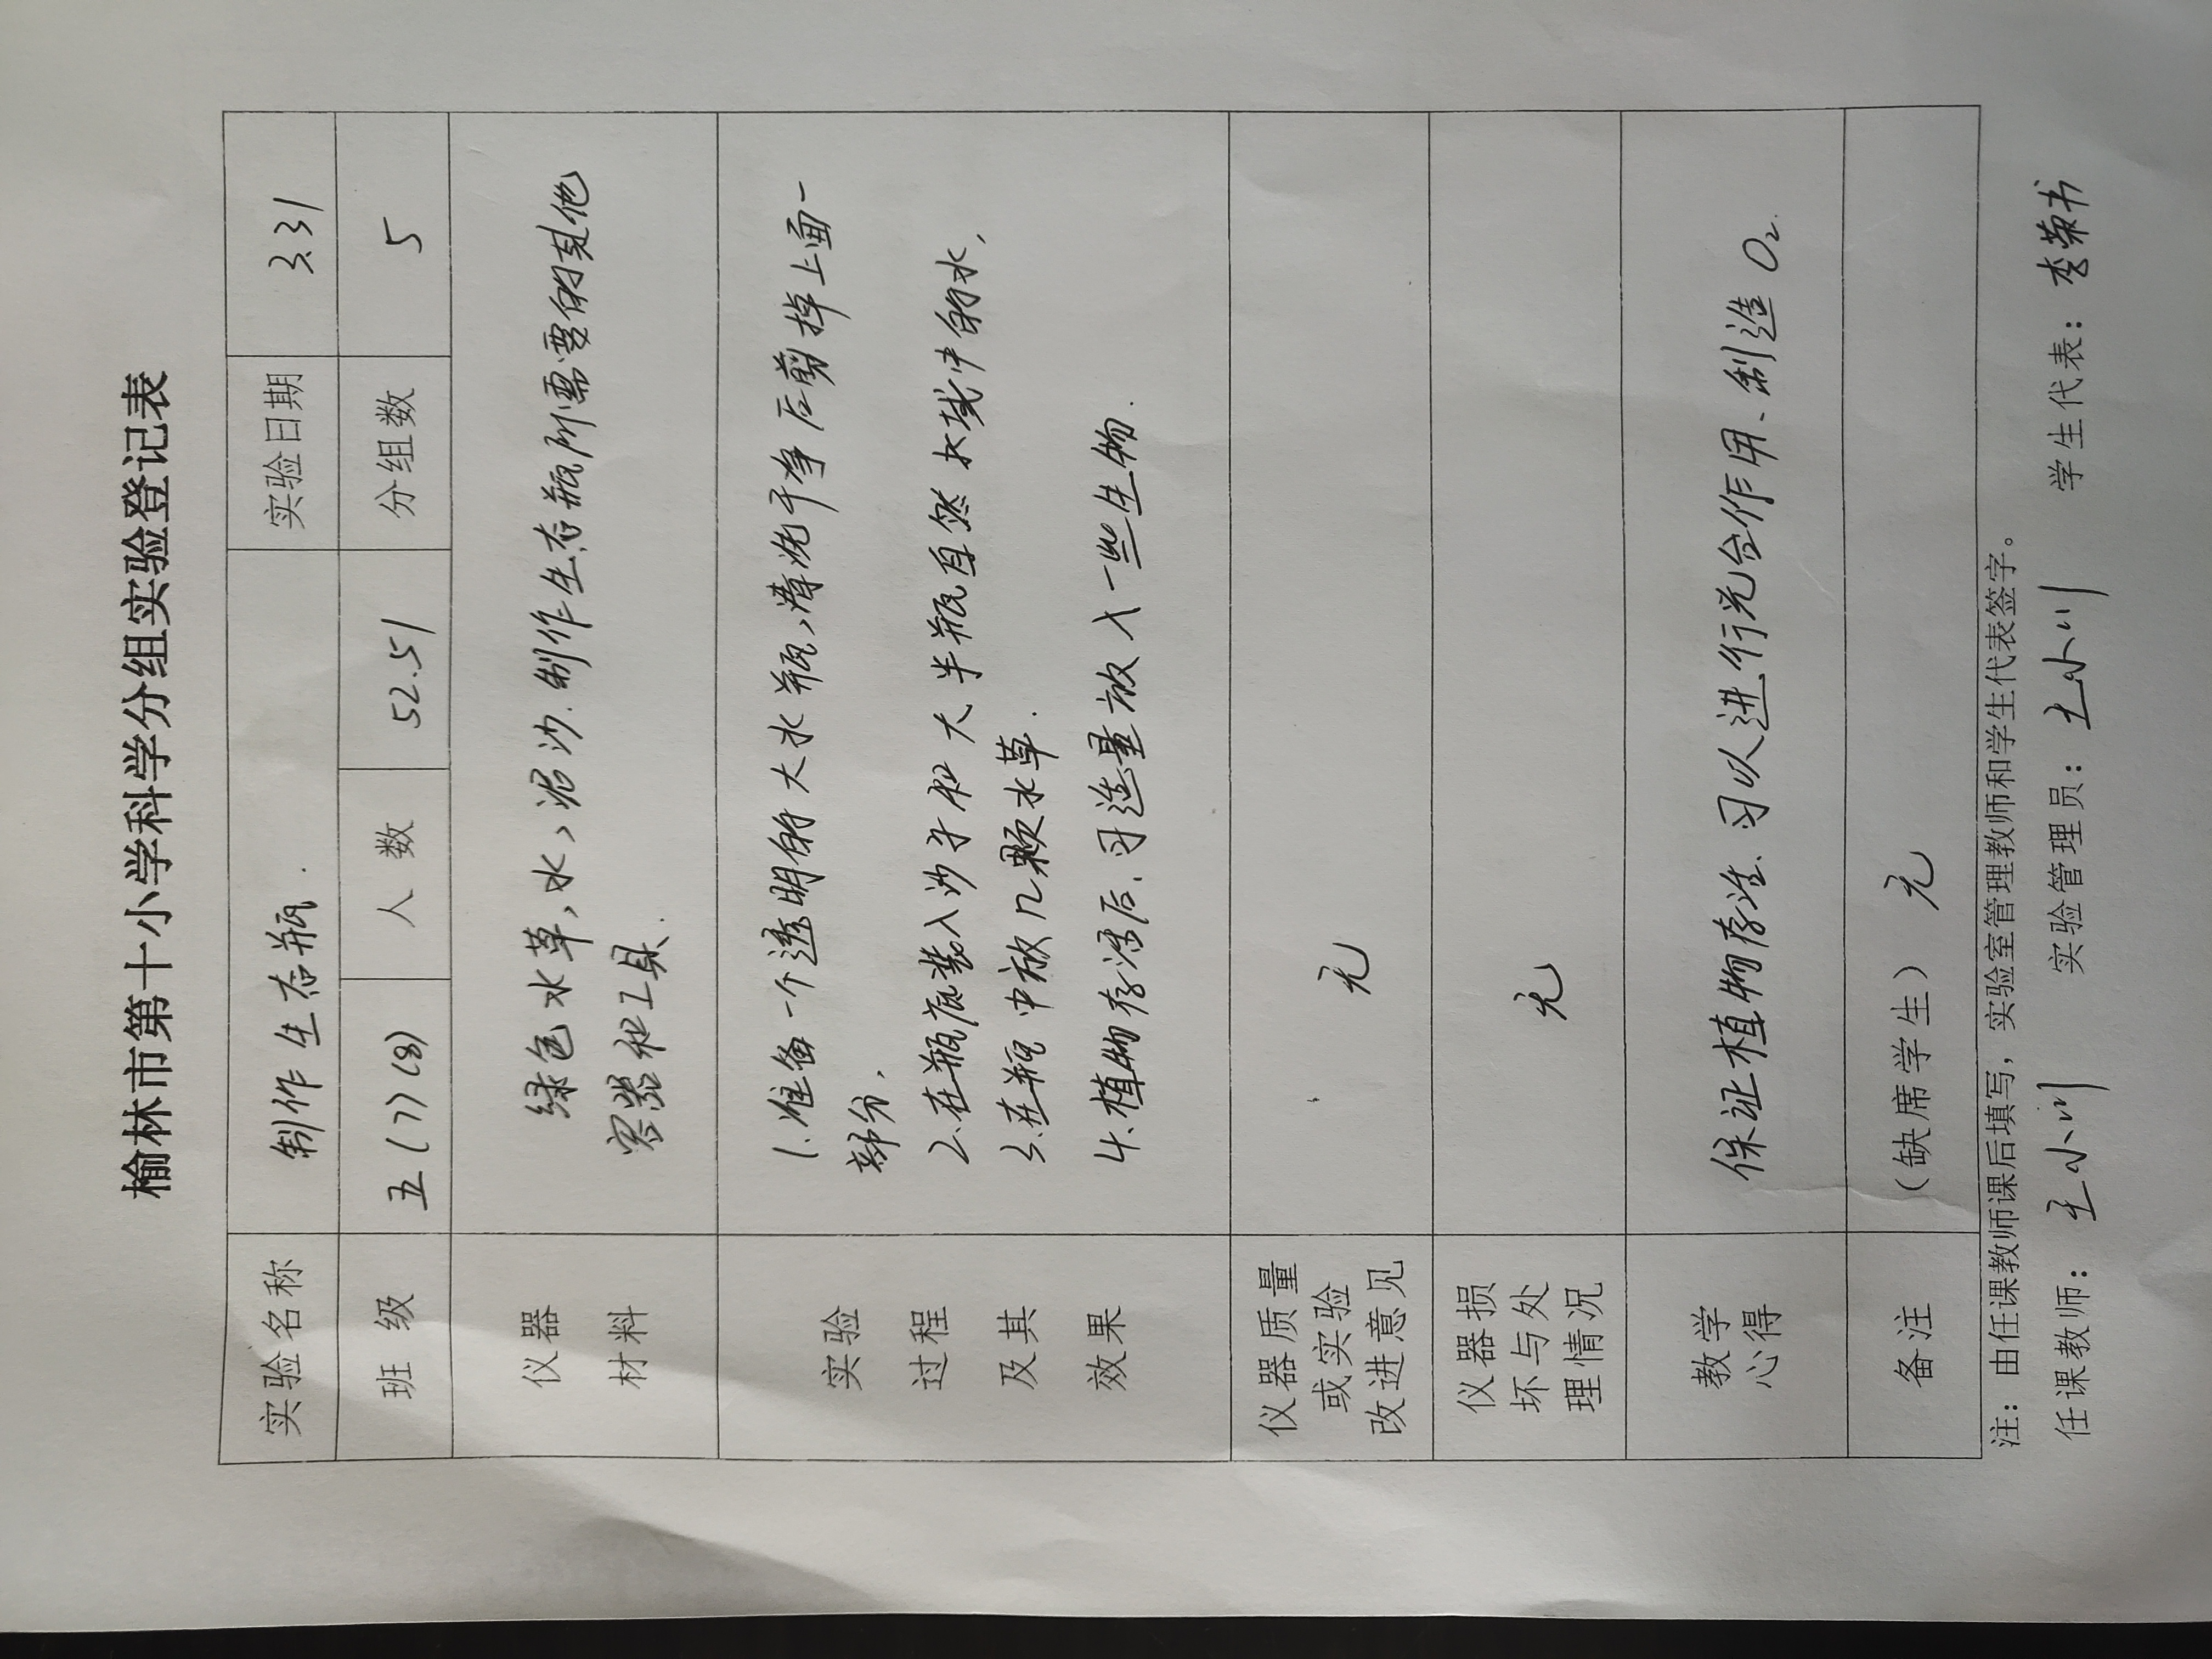 榆林市第十小学科学分组实验登记表
实验名称 制作生态瓶. 实验日期 3.31
班 级 五(7)(8) 人 数 52.51 分组数 5
仪器 绿色水草,水,泥沙.制作生态瓶所需要的其他
材料 容器和工具.
实验 1.准备一个透明的大水瓶,清洗干净后剪掉上面一
部分,
过程 2.在瓶底装入沙子和大半瓶自然水域中的水,
及其 3.在瓶中放几颗水草.
效果 4.植物存活后,可适量放入一些生物.
仪器质量
或实验 无
改进意见
仪器损
坏与处 无
理情况
教学 保证植物存活、可以进行光合作用、制造O₂.
心得
备注 (缺席学生) 无
注:由任课教师课后填写,实验室管理教师和学生代表签字。
任课教师: 王小川 实验管理员: 王小川 学生代表: 李荣书